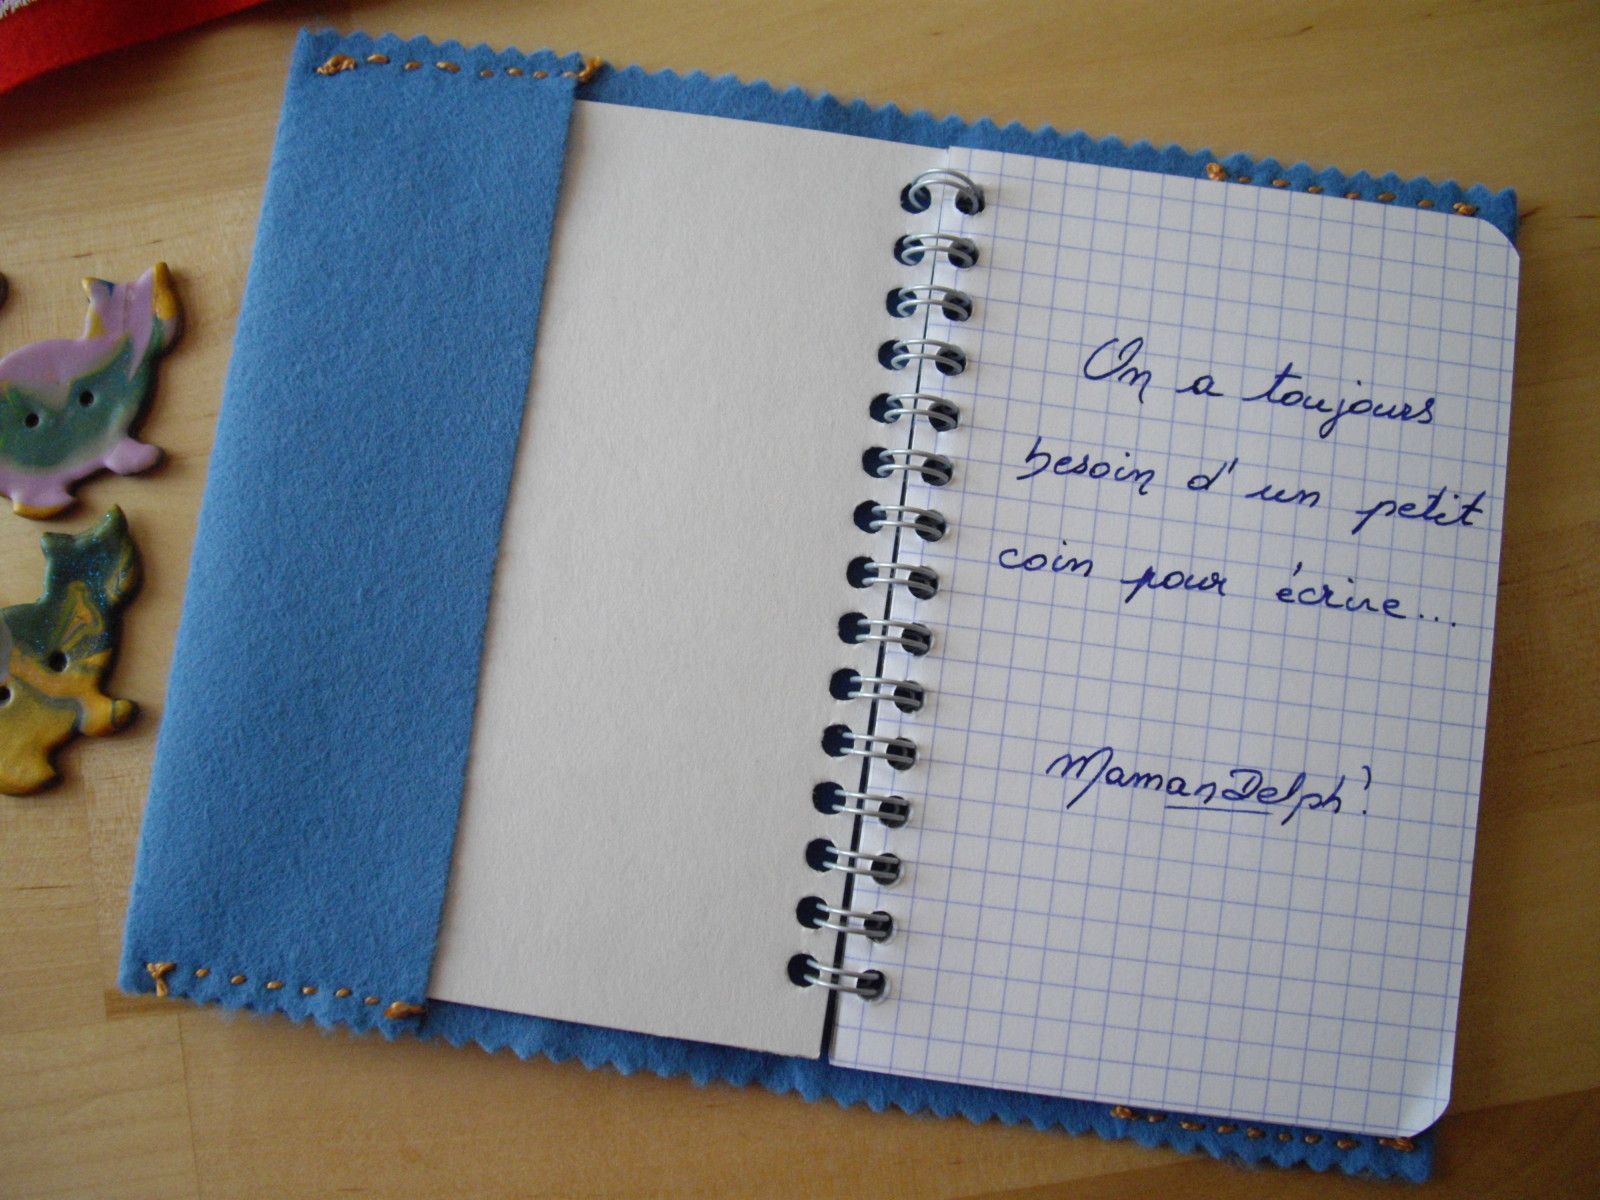 On a toujours
besoin d'un petit
coin pour écrire...
MamanDelph!